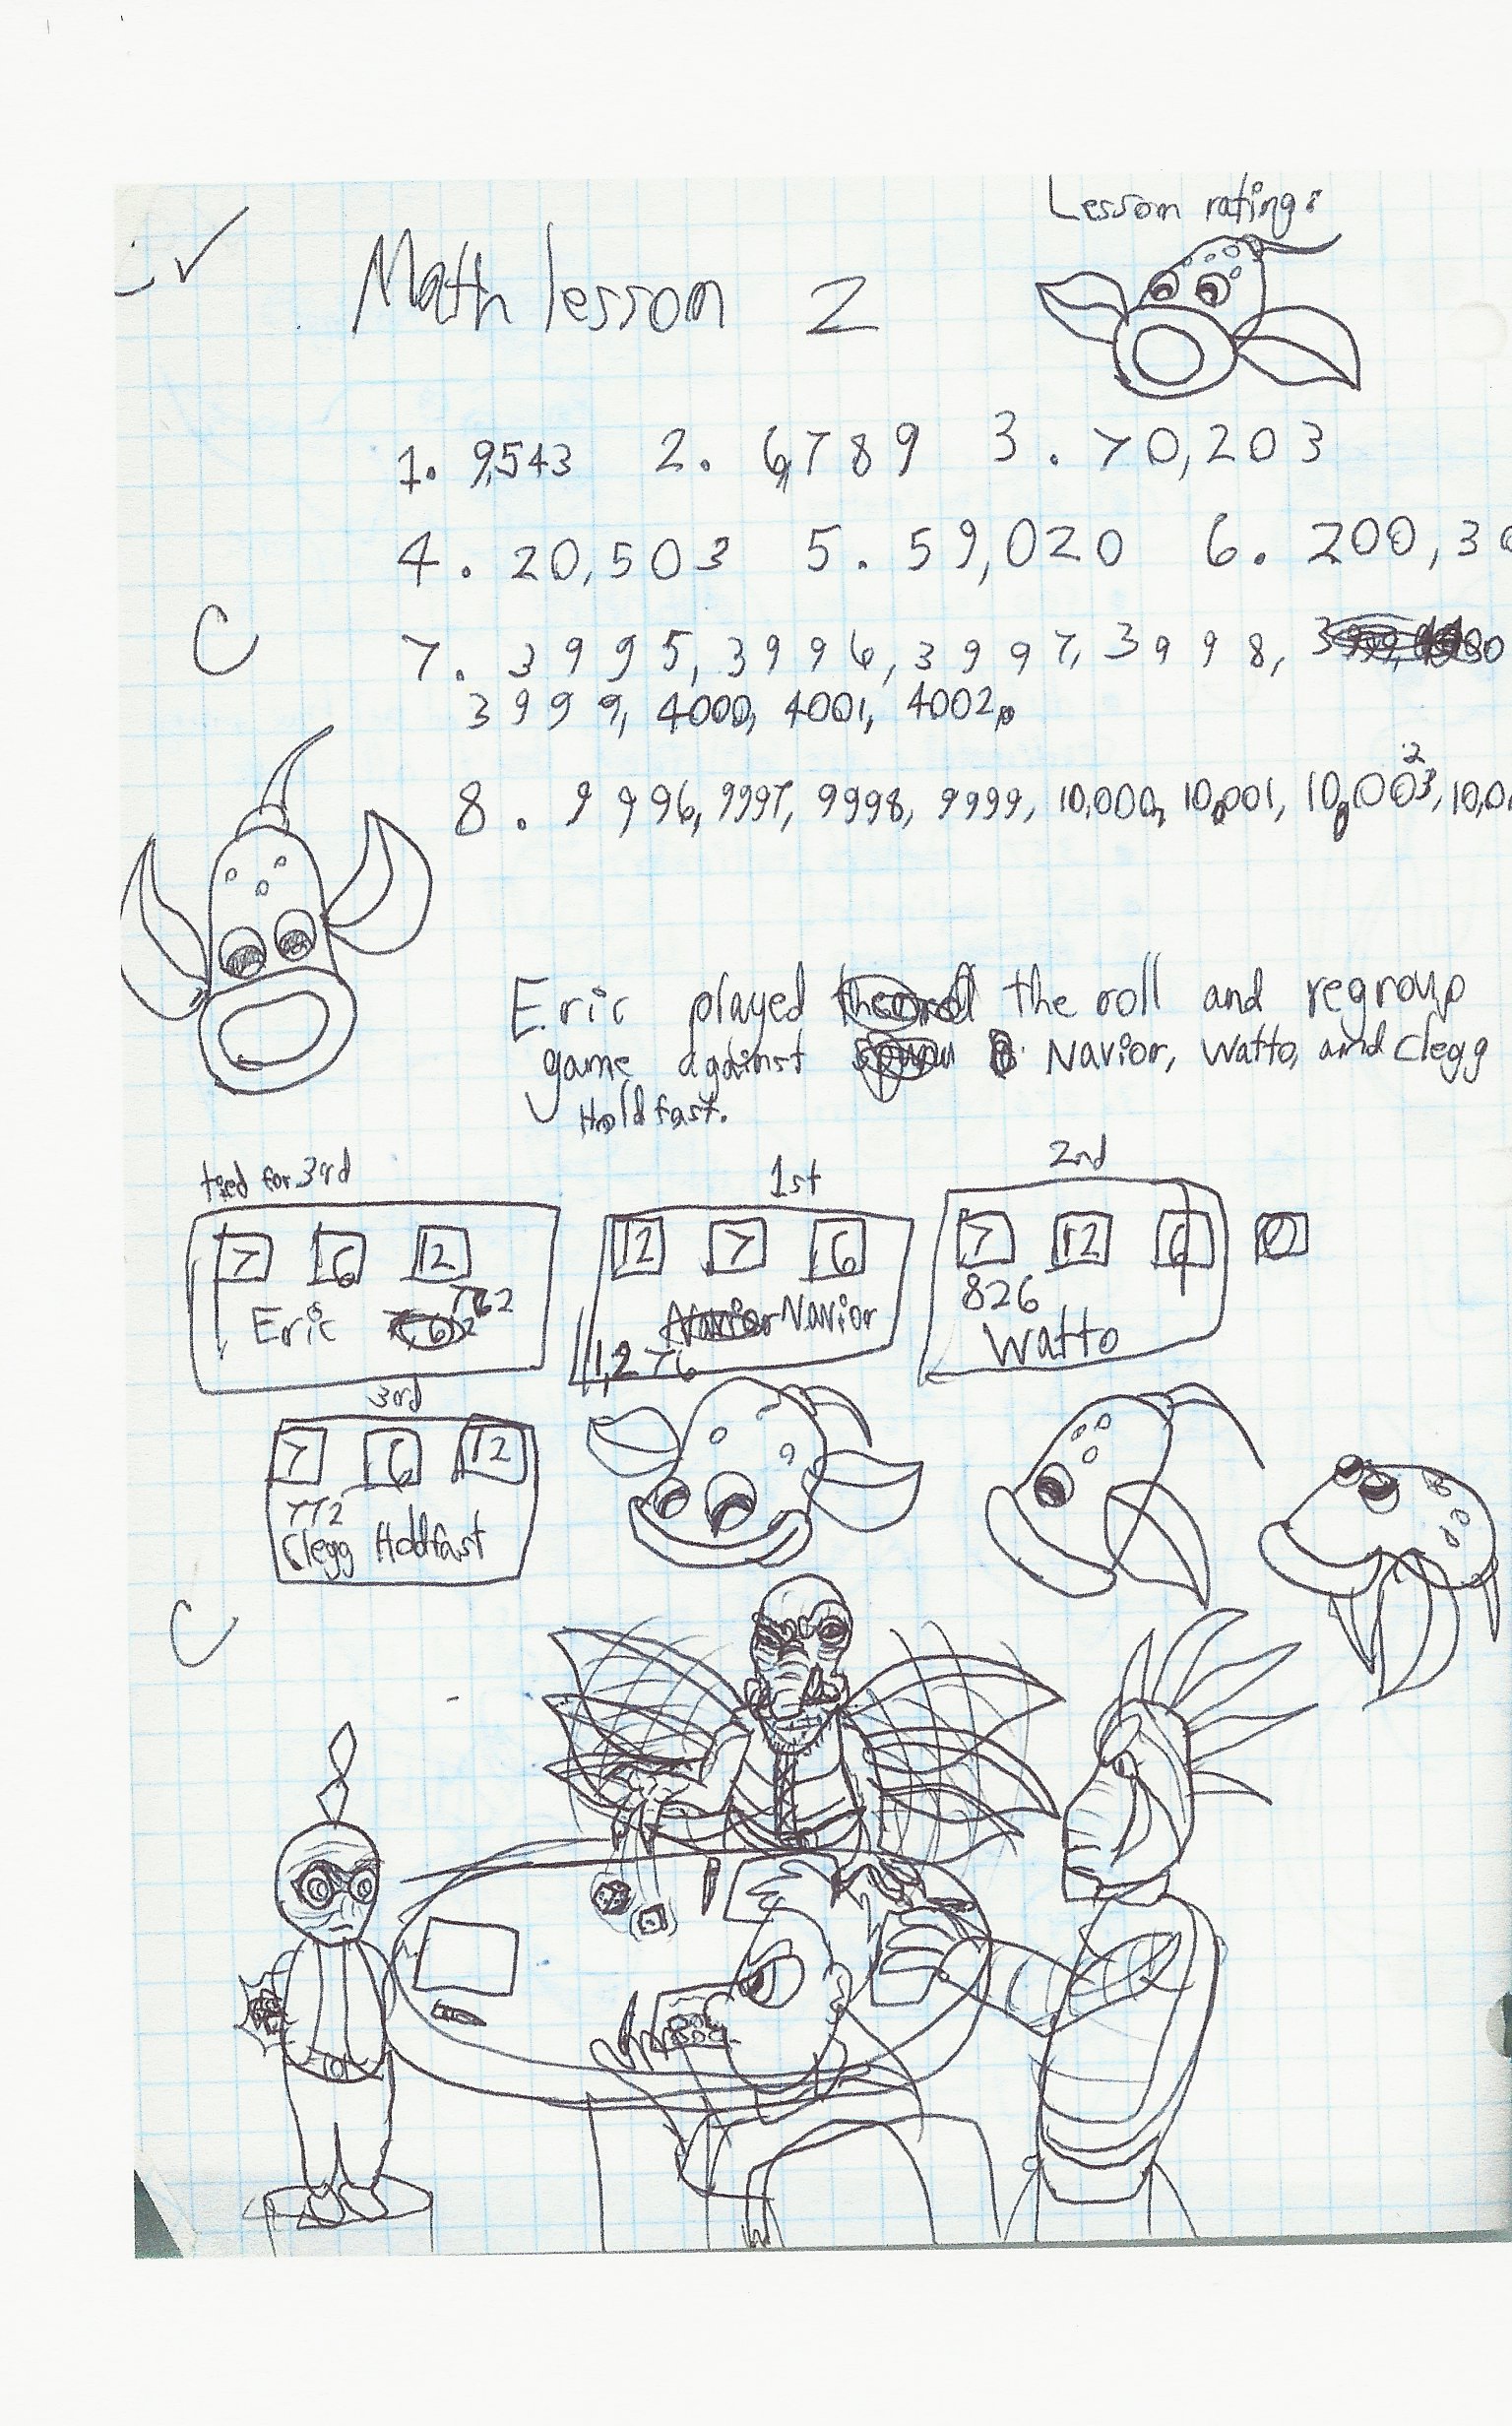 Lesson rating:
Math lesson 2
1. 9,543 2. 6,789 3. 70,203
4. 20,503 5. 59,020 6. 200,30
C
7. 3995, 3996, 3997, 3998,
3999, 4000, 4001, 4002.
8. 9996, 9997, 9998, 9999, 10,000, 10,001, 10,002, 10,0
Eric played the roll and regroup
game against Navior, Watto, and Clegg
Holdfast.
tied for 3rd 1st 2nd
7 6 12 12 7 6 7 12 6
Eric 772 Navior 826
1,276 Watto
3rd
7 6 12
772
Clegg Holdfast
C